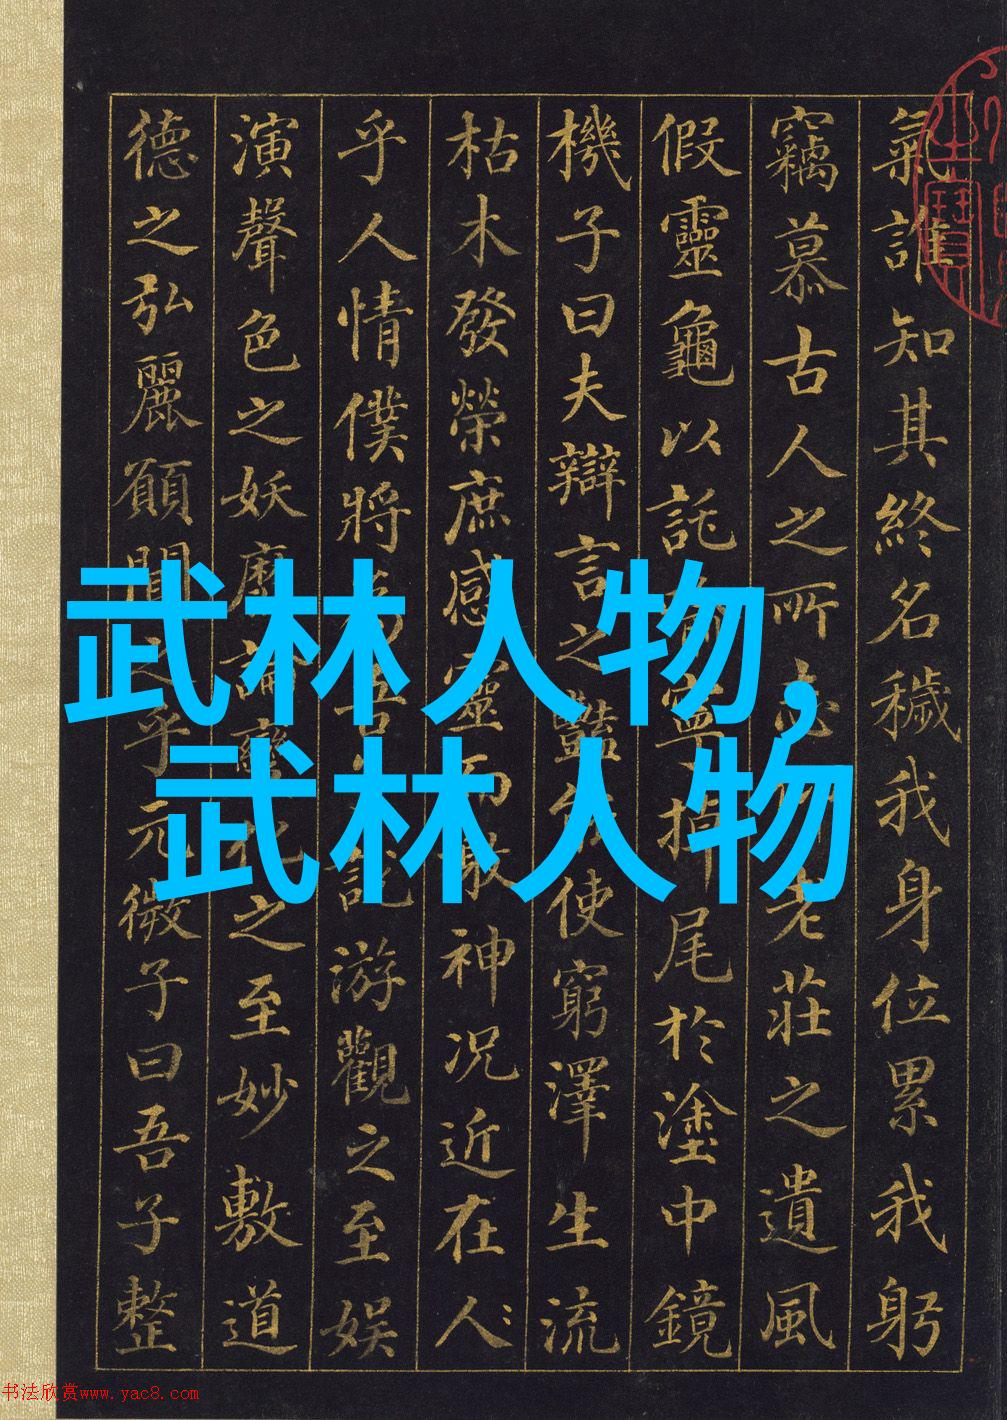 氣誰知其終名穢我身位累我躬
竊慕古人之所志老莊之遺風
假靈龜以託喻寧掉尾於塗中鏡
機子曰夫辯言之豔能使窮澤生流
枯木發榮庶感靈而激神況近在人
乎人情僕將為吾子說游觀之至娛
演聲色之妖靡論變化之至妙敷道
德之弘麗願聞之乎元微子曰吾子整
武林人物，
武林人物
书法欣赏www.yac8.com